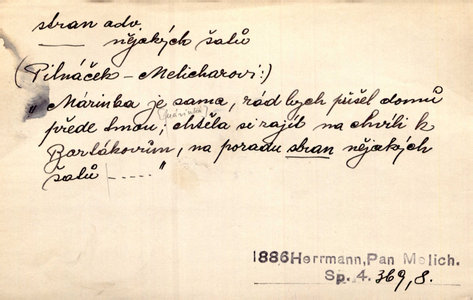 stran adv.
nějakých šalů
(Pilnáček – Melicharovi:)
„Márinka je sama, rád bych přišel domů
(Márinka)
přede tmou; chtěla si zajít na chvíli k
Barlákovům, na poradu stran nějakých
šalů –....."
1886 Herrmann, Pan Melich.
Sp. 4. 369, 8.